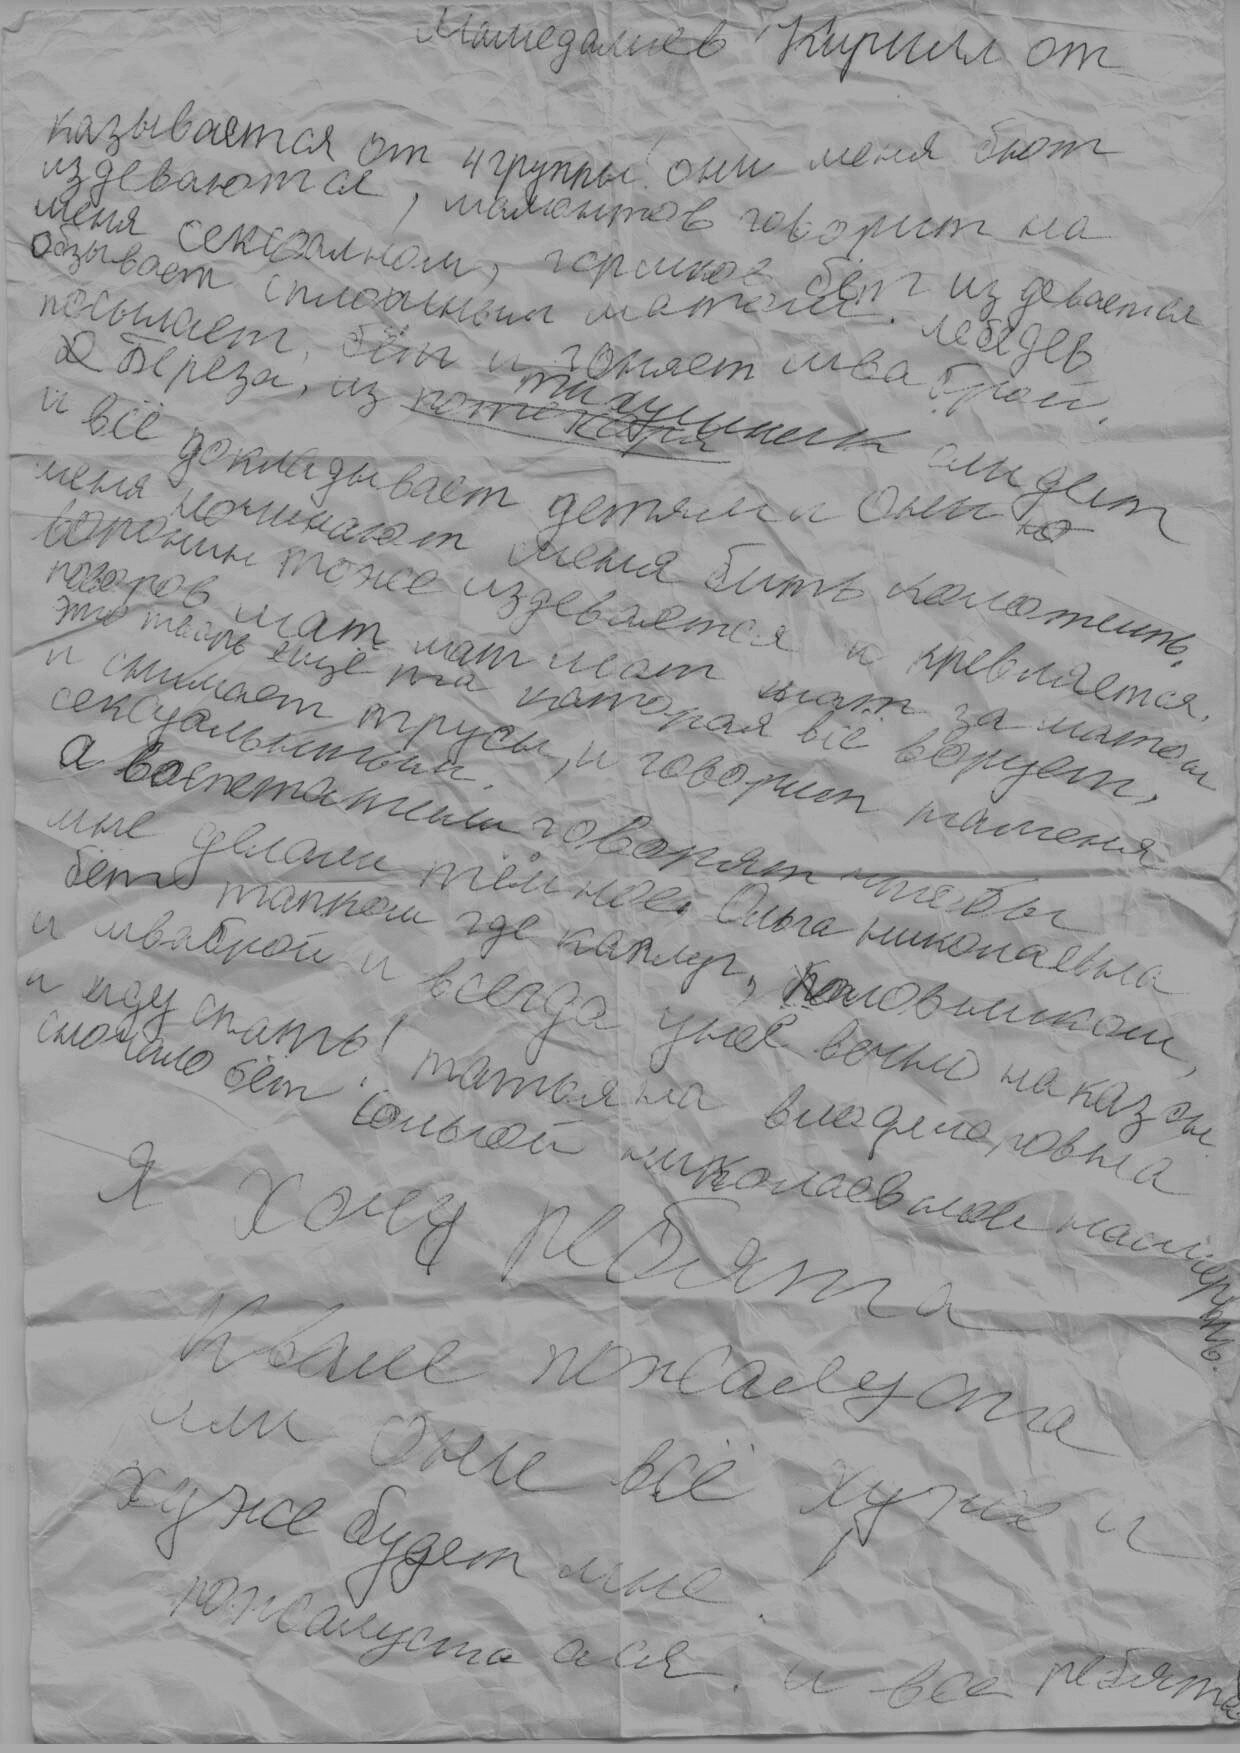 Мамедалиев Кирилл от
казывается от 4 группы. они меня бют
издеваются, мамонтов говорит на
меня сексоалном, горшков бёт издевается
обзывает сплошным матом. лебедев
посылает, бёт и гоняет шваброй.
Береза, из тигушник
и всё докладывает детям и они
меня начинают меня бить колотить.
воронин тоже издевается и кревляется.
поваров мат мат мат мат за матом
это тварь ещё та которая всё ворует,
и снимает трусы, и говорит наменя
сексуальныый
а воспетатили говорят чтобы
мне делали тёмное. Ольга николаевна
бёт тапком где каблук, половником,
и шваброй и всегда унеё вечно наказы
и иду спать! татьяна владимировна
сночало бёт сольгой николаевной
Я хочу ребята
К вам пожалуста
или они всё хуже и
хуже будет мне.
пожалуста ася. и все ребята